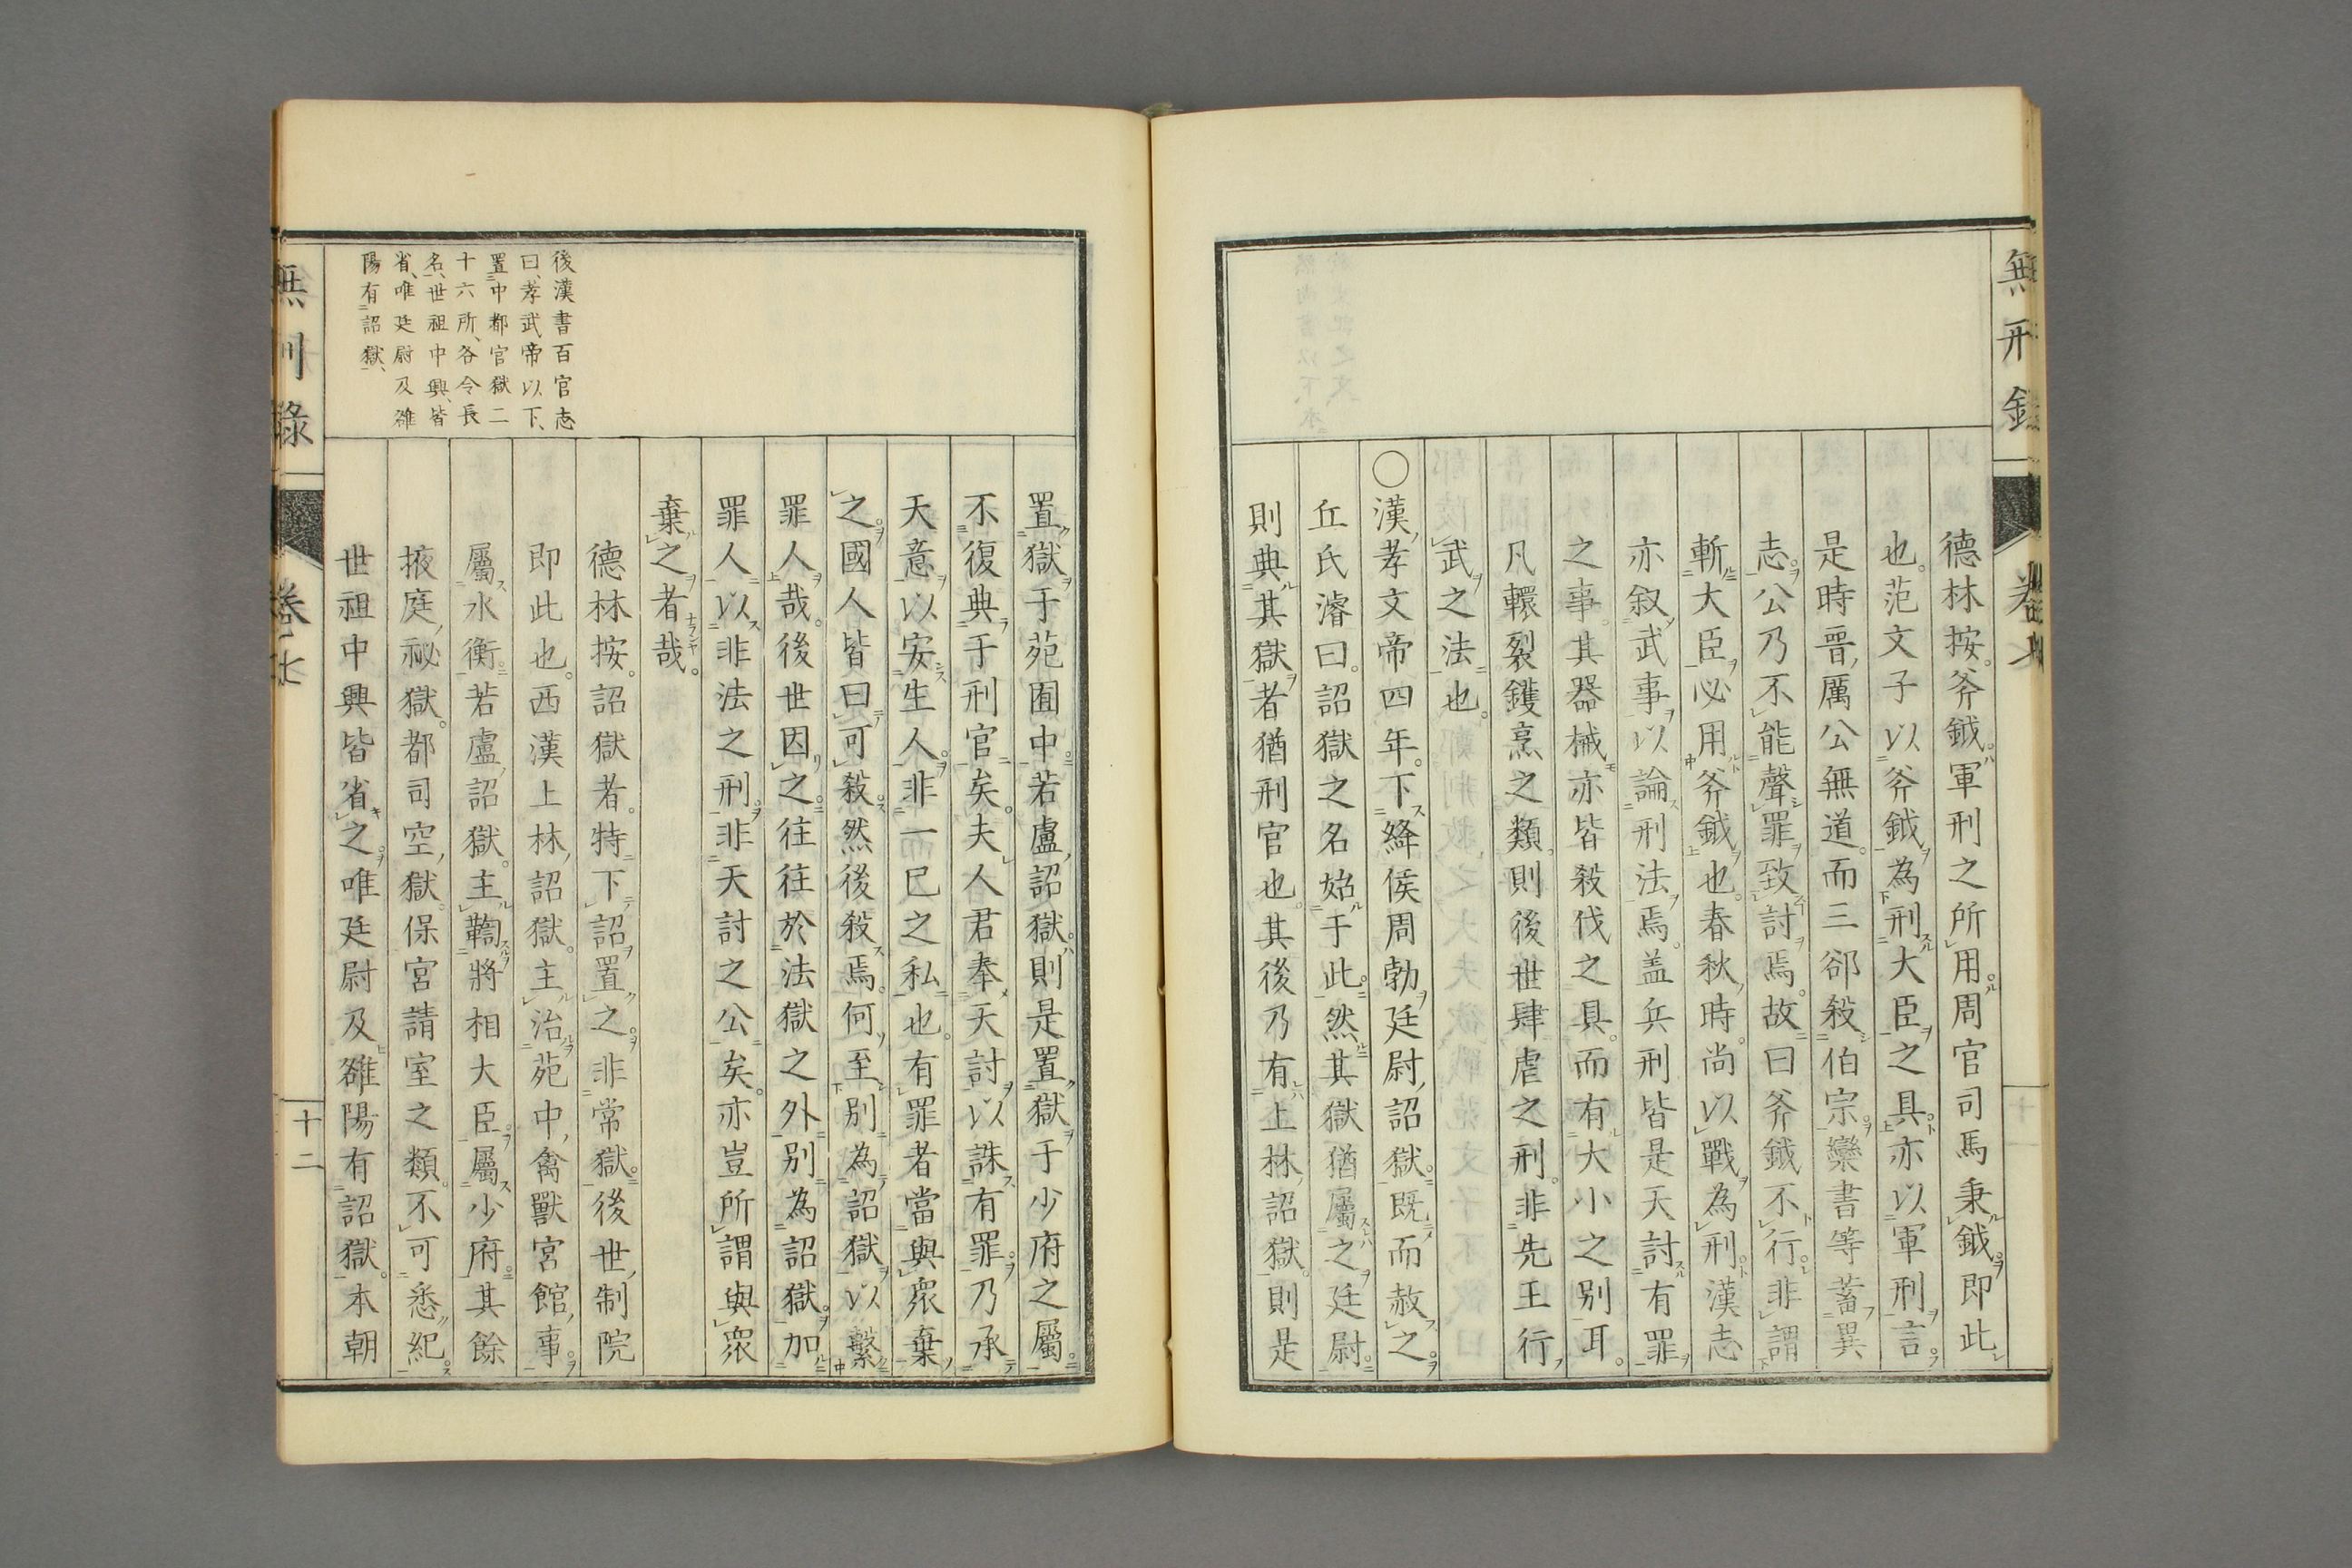 無刑録
卷七
德林按。斧鉞。軍刑之所用。周官司馬秉鉞。即此
也。范文子以斧鉞為刑大臣之具。亦以軍刑言
是時晋厲公無道。而三郤殺伯宗。欒書等蓄異
志。公乃不能聲罪致討焉。故曰斧鉞不行。非謂
斬大臣必用斧鉞也。春秋時。尚以戰為刑。漢志
亦叙武事以論刑法焉。盖兵刑皆是天討有罪
之事。其器械亦皆殺伐之具。而有大小之別耳。
凡轘裂鑊烹之類。則後世肆虐之刑。非先王行
武之法也。
〇漢孝文帝四年。下絳侯周勃廷尉詔獄。既而赦之。
丘氏濬曰。詔獄之名始于此。然其獄猶屬之廷尉。
則典其獄者猶刑官也。其後乃有上林詔獄。則是
置獄于苑囿中。若盧詔獄。則是置獄于少府之屬。
不復典于刑官矣。夫人君奉天討以誅有罪。乃承
天意以安生人。非一己之私也。有罪者當與眾棄
之。國人皆曰可殺。然後殺焉。何至別為詔獄以繫
罪人哉。後世因之。往往於法獄之外別為詔獄。加
罪人以非法之刑。非天討之公矣。亦豈所謂與眾
棄之者哉。
德林按。詔獄者。特下詔置之。非常獄。後世制院
即此也。西漢上林詔獄。主治苑中禽獸宮館事。
屬水衡。若盧詔獄。主鞫將相大臣。屬少府。其餘
掖庭祕獄。都司空獄。保宮請室之類。不可悉紀。
世祖中興皆省之。唯廷尉及雒陽有詔獄。本朝
後漢書百官志
曰、孝武帝以下、
置中都官獄二
十六所、各令長
名、世祖中興、皆
省、唯廷尉及雒
陽有詔獄、
無刑録
卷七
十二